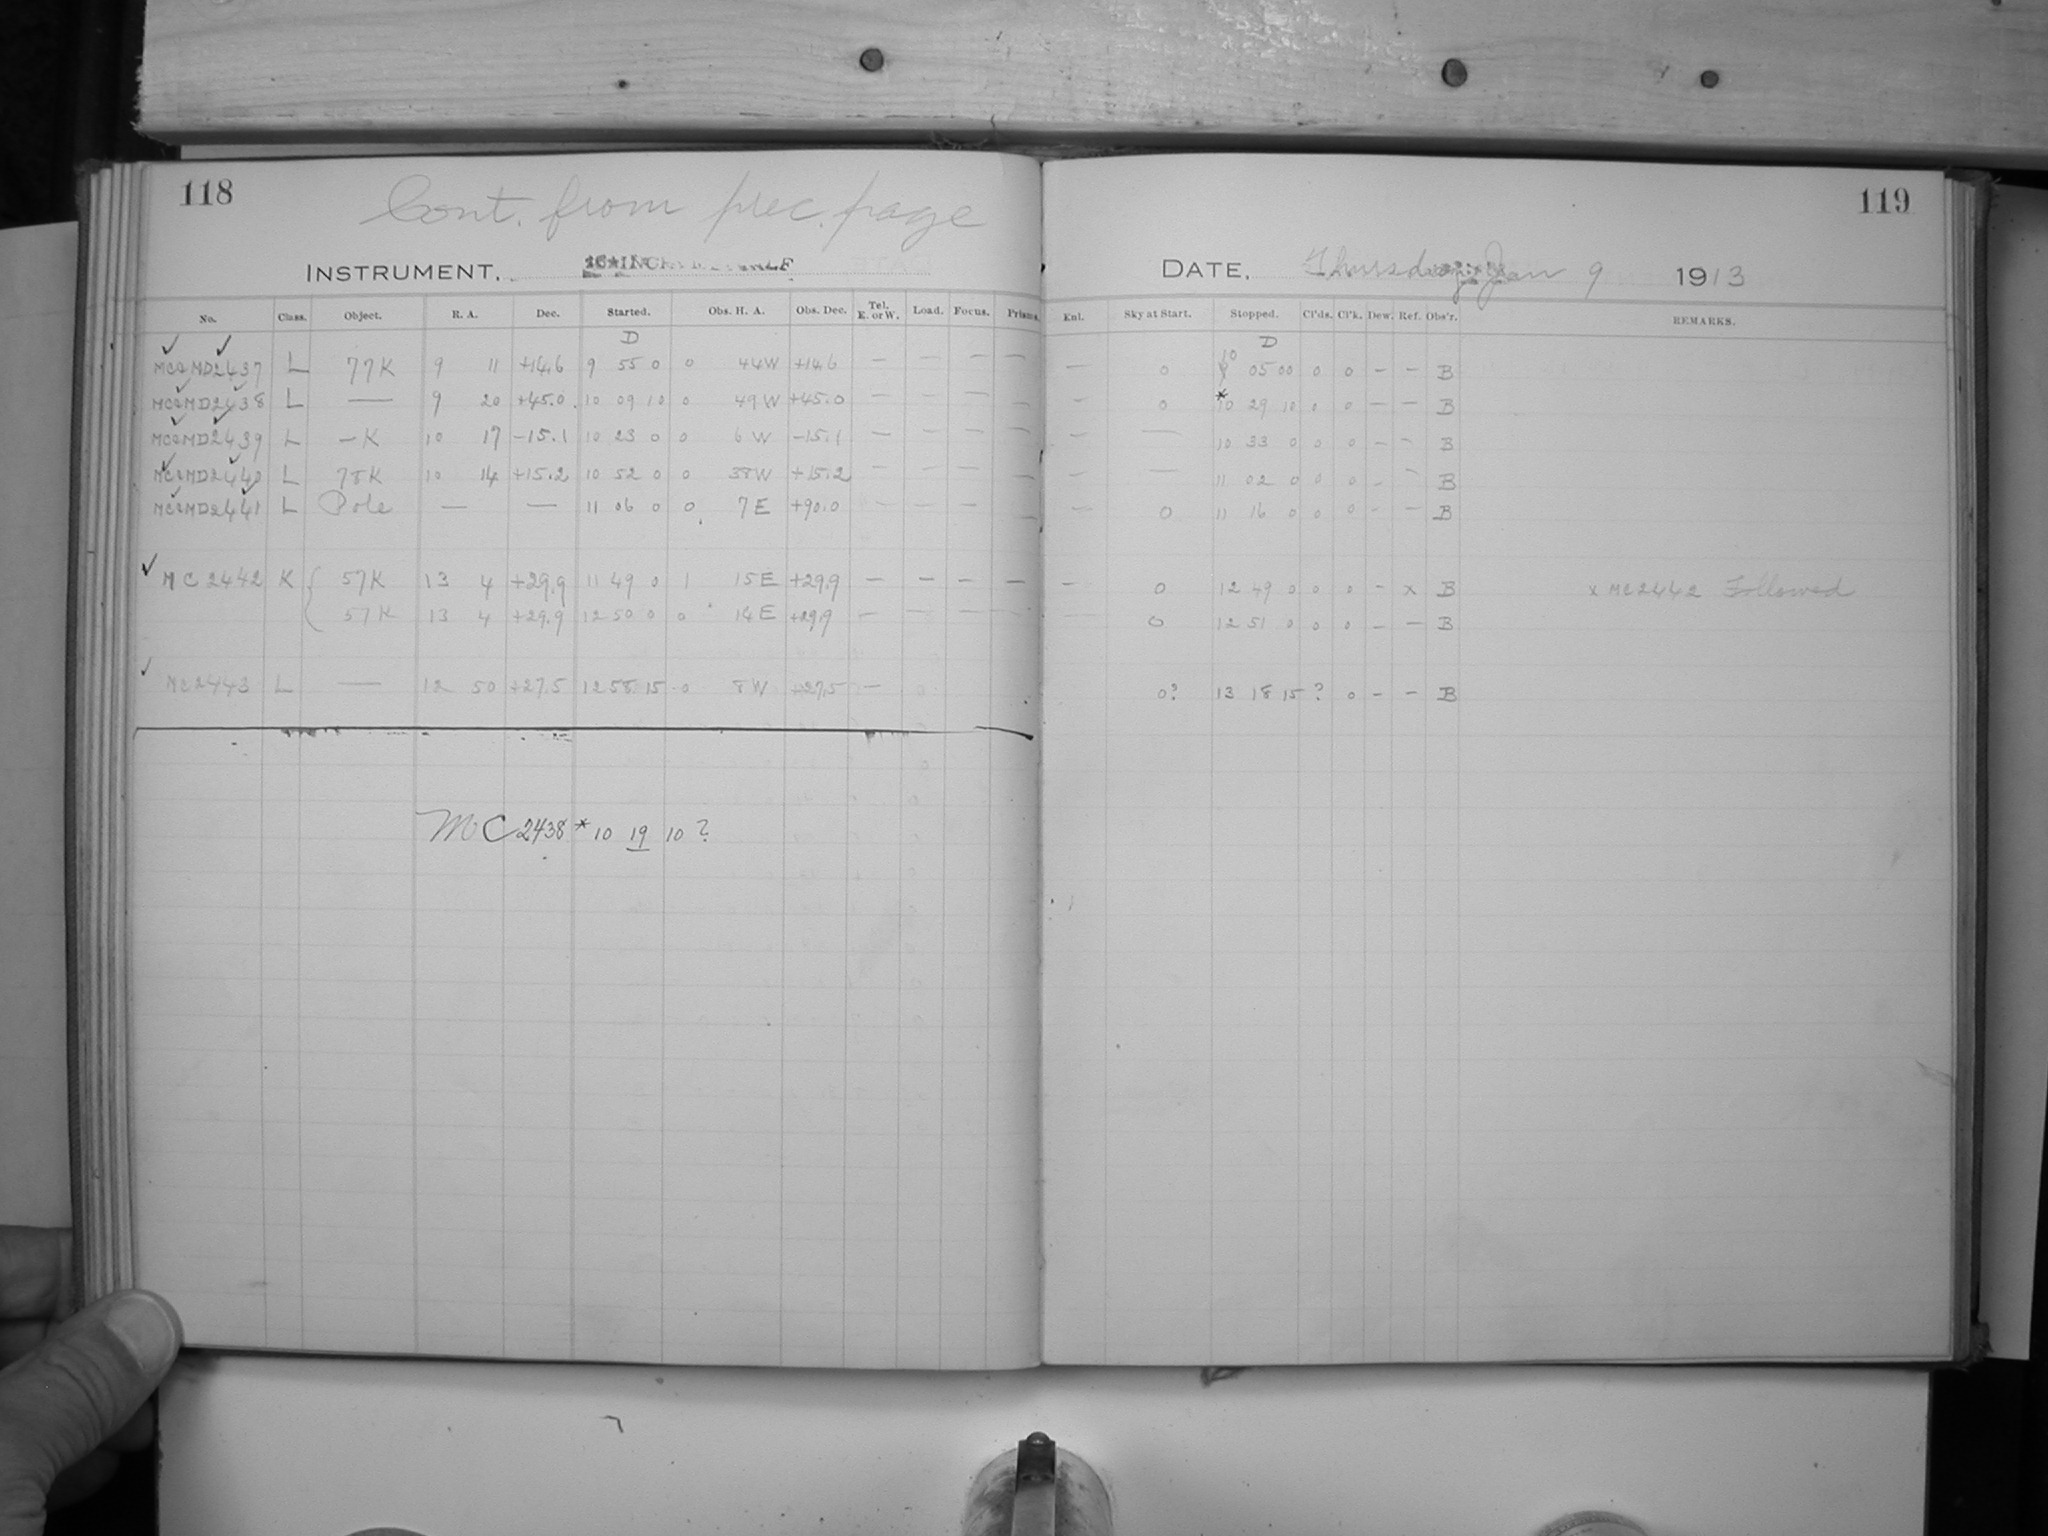 118
Cont. from prec. page
INSTRUMENT,
No. Class. Object. R. A. Dec. Started. Obs. H. A. Obs. Dec. Tel. E. or W. Load. Focus. Prisms.
D
MC&MD2437 L 77K 9 11 +14.6 9 55 0 0 44W +14.6 — — — —
MC&MD2438 L — 9 20 +45.0 10 09 10 0 49W +45.0 — — — —
MC&MD2439 L —K 10 17 -15.1 10 23 0 0 6W -15.1 — — — —
MC&MD2440 L 78K 10 14 +15.2 10 52 0 0 38W +15.2 — — — —
MC&MD2441 L Pole — — 11 06 0 0 7E +90.0 — — — —
MC2442 K { 57K 13 4 +29.9 11 49 0 1 15E +29.9 — — — —
57K 13 4 +29.9 12 50 0 0 14E +29.9 — — — —
MC2443 L — 12 50 +27.5 12 58 15 0 8W +27.5 —
MC 2438 * 10 19 10 ?
119
DATE, Thursday Jan 9 1913
Enl. Sky at Start. Stopped. Cl'ds. Cl'k. Dew. Ref. Obs'r. REMARKS.
D
— 0 10 05 00 0 0 — — B
— 0 * 10 29 10 0 0 — — B
— — 10 33 0 0 0 — — B
— — 11 02 0 0 0 — — B
— 0 11 16 0 0 0 — — B
— 0 12 49 0 0 0 — x B x MC2442 Followed
— 0 12 51 0 0 0 — — B
0? 13 18 15 ? 0 — — B